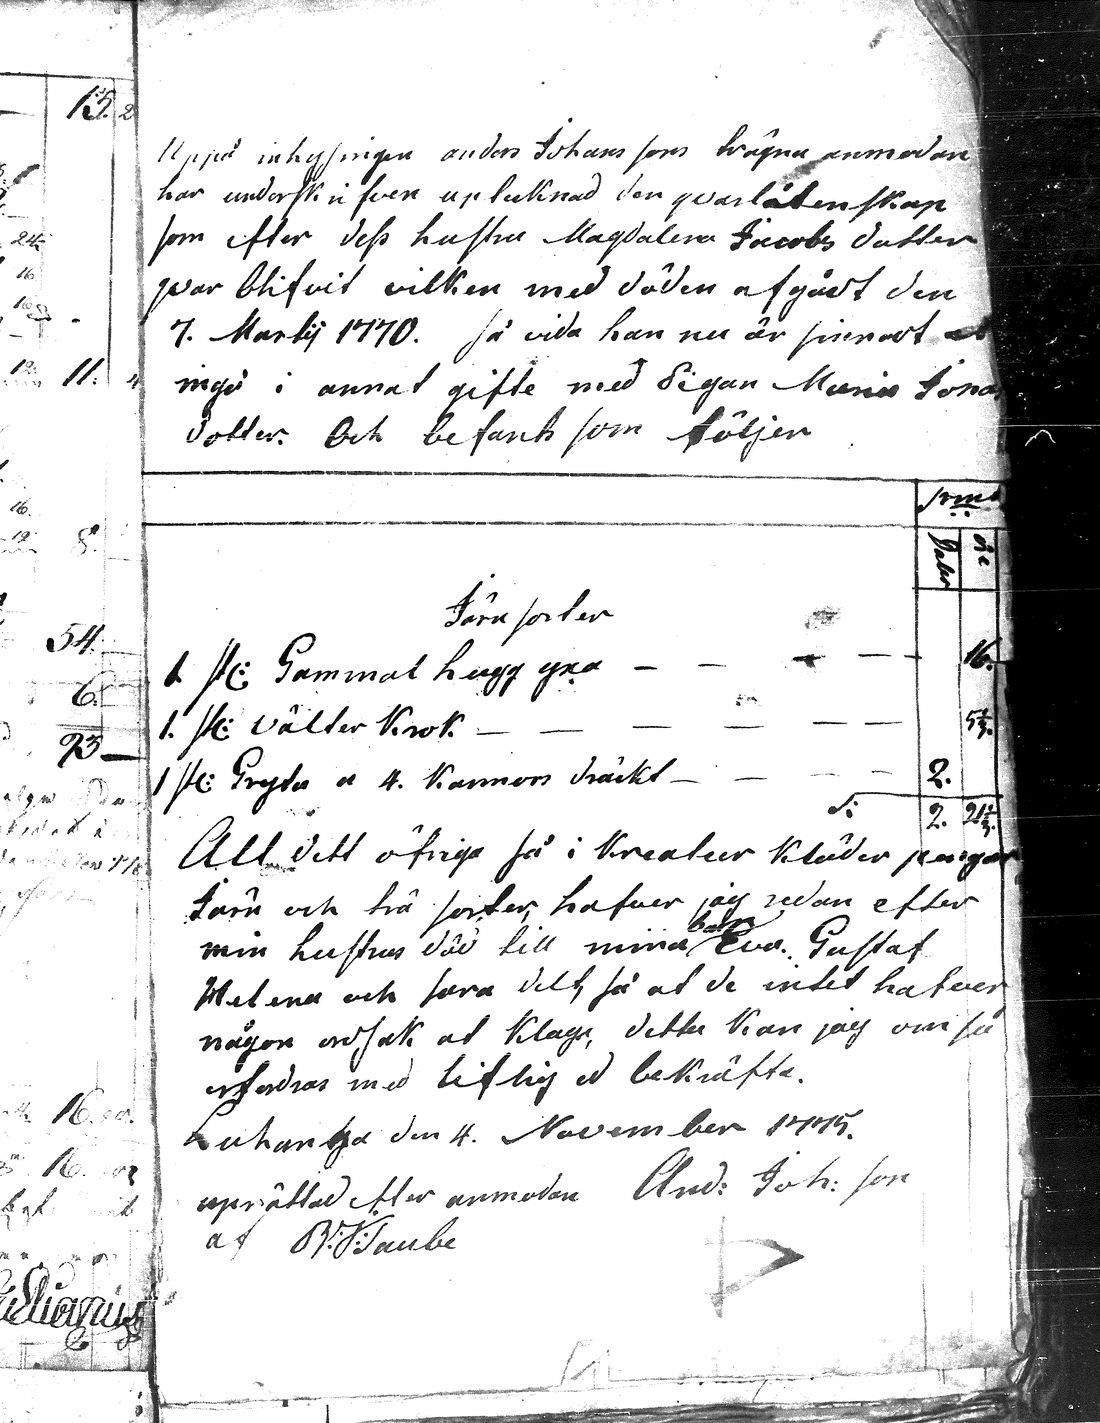 Uppå inhysingen anders Johans sons trägna anmodan
har underskrifven uptecknad den qvarlåtenskap
som efter dess hustru Magdalena Jacobs dotter
qvar blifvit vilken med döden afgådt den
7. Martij 1770. så vida han nu är sinnadt at
ingå i annat gifte med Pigan Maria Jonas
dotter. Och befants som följer
Srmt
Daler
öre
Järn sorter
1. st: Gammal hugg yxa — — — — 16.
1. st: välter krok — — — — — 5⅓.
1 st: Gryta a 4. kannors dräckt — — — — 2.
S: 2. 21⅓.
Alt dett öfriga så i kreatur kläder pengar
Järn och trä sorter, hafver jag redan efter
min hustrus död till mina barn Eva. Gustaf
Helena och sara delt, så at de intet hafver
någon ordsak at klaga, detta kan jag om så
erfordras med liflig ed bekräfta.
den 4. November 1775.
uprättad efter anmodan And: Joh: son
af Taube
15. 2
24
16
11. 4
16.
12
8.
54.
6.
93 —
16.
16.